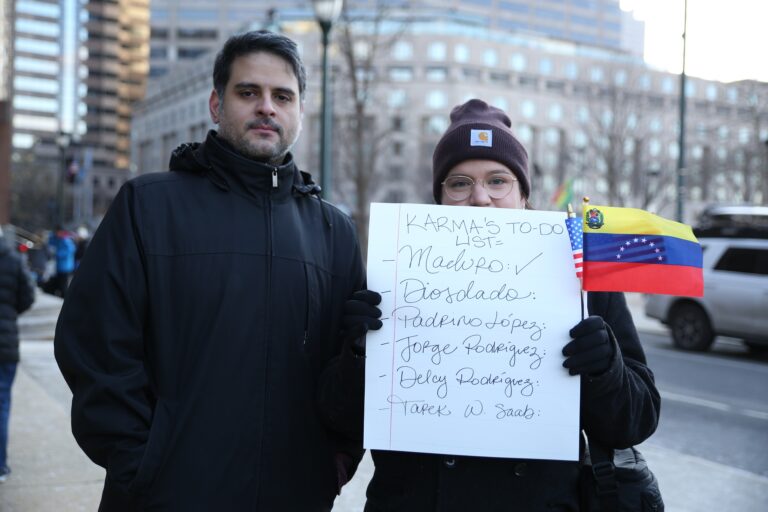 KARMA'S TO-DO
LIST=
- Maduro: ✓
- Diosdado:
- Padrino López:
- Jorge Rodríguez:
- Delcy Rodríguez:
- Tarek W. Saab: